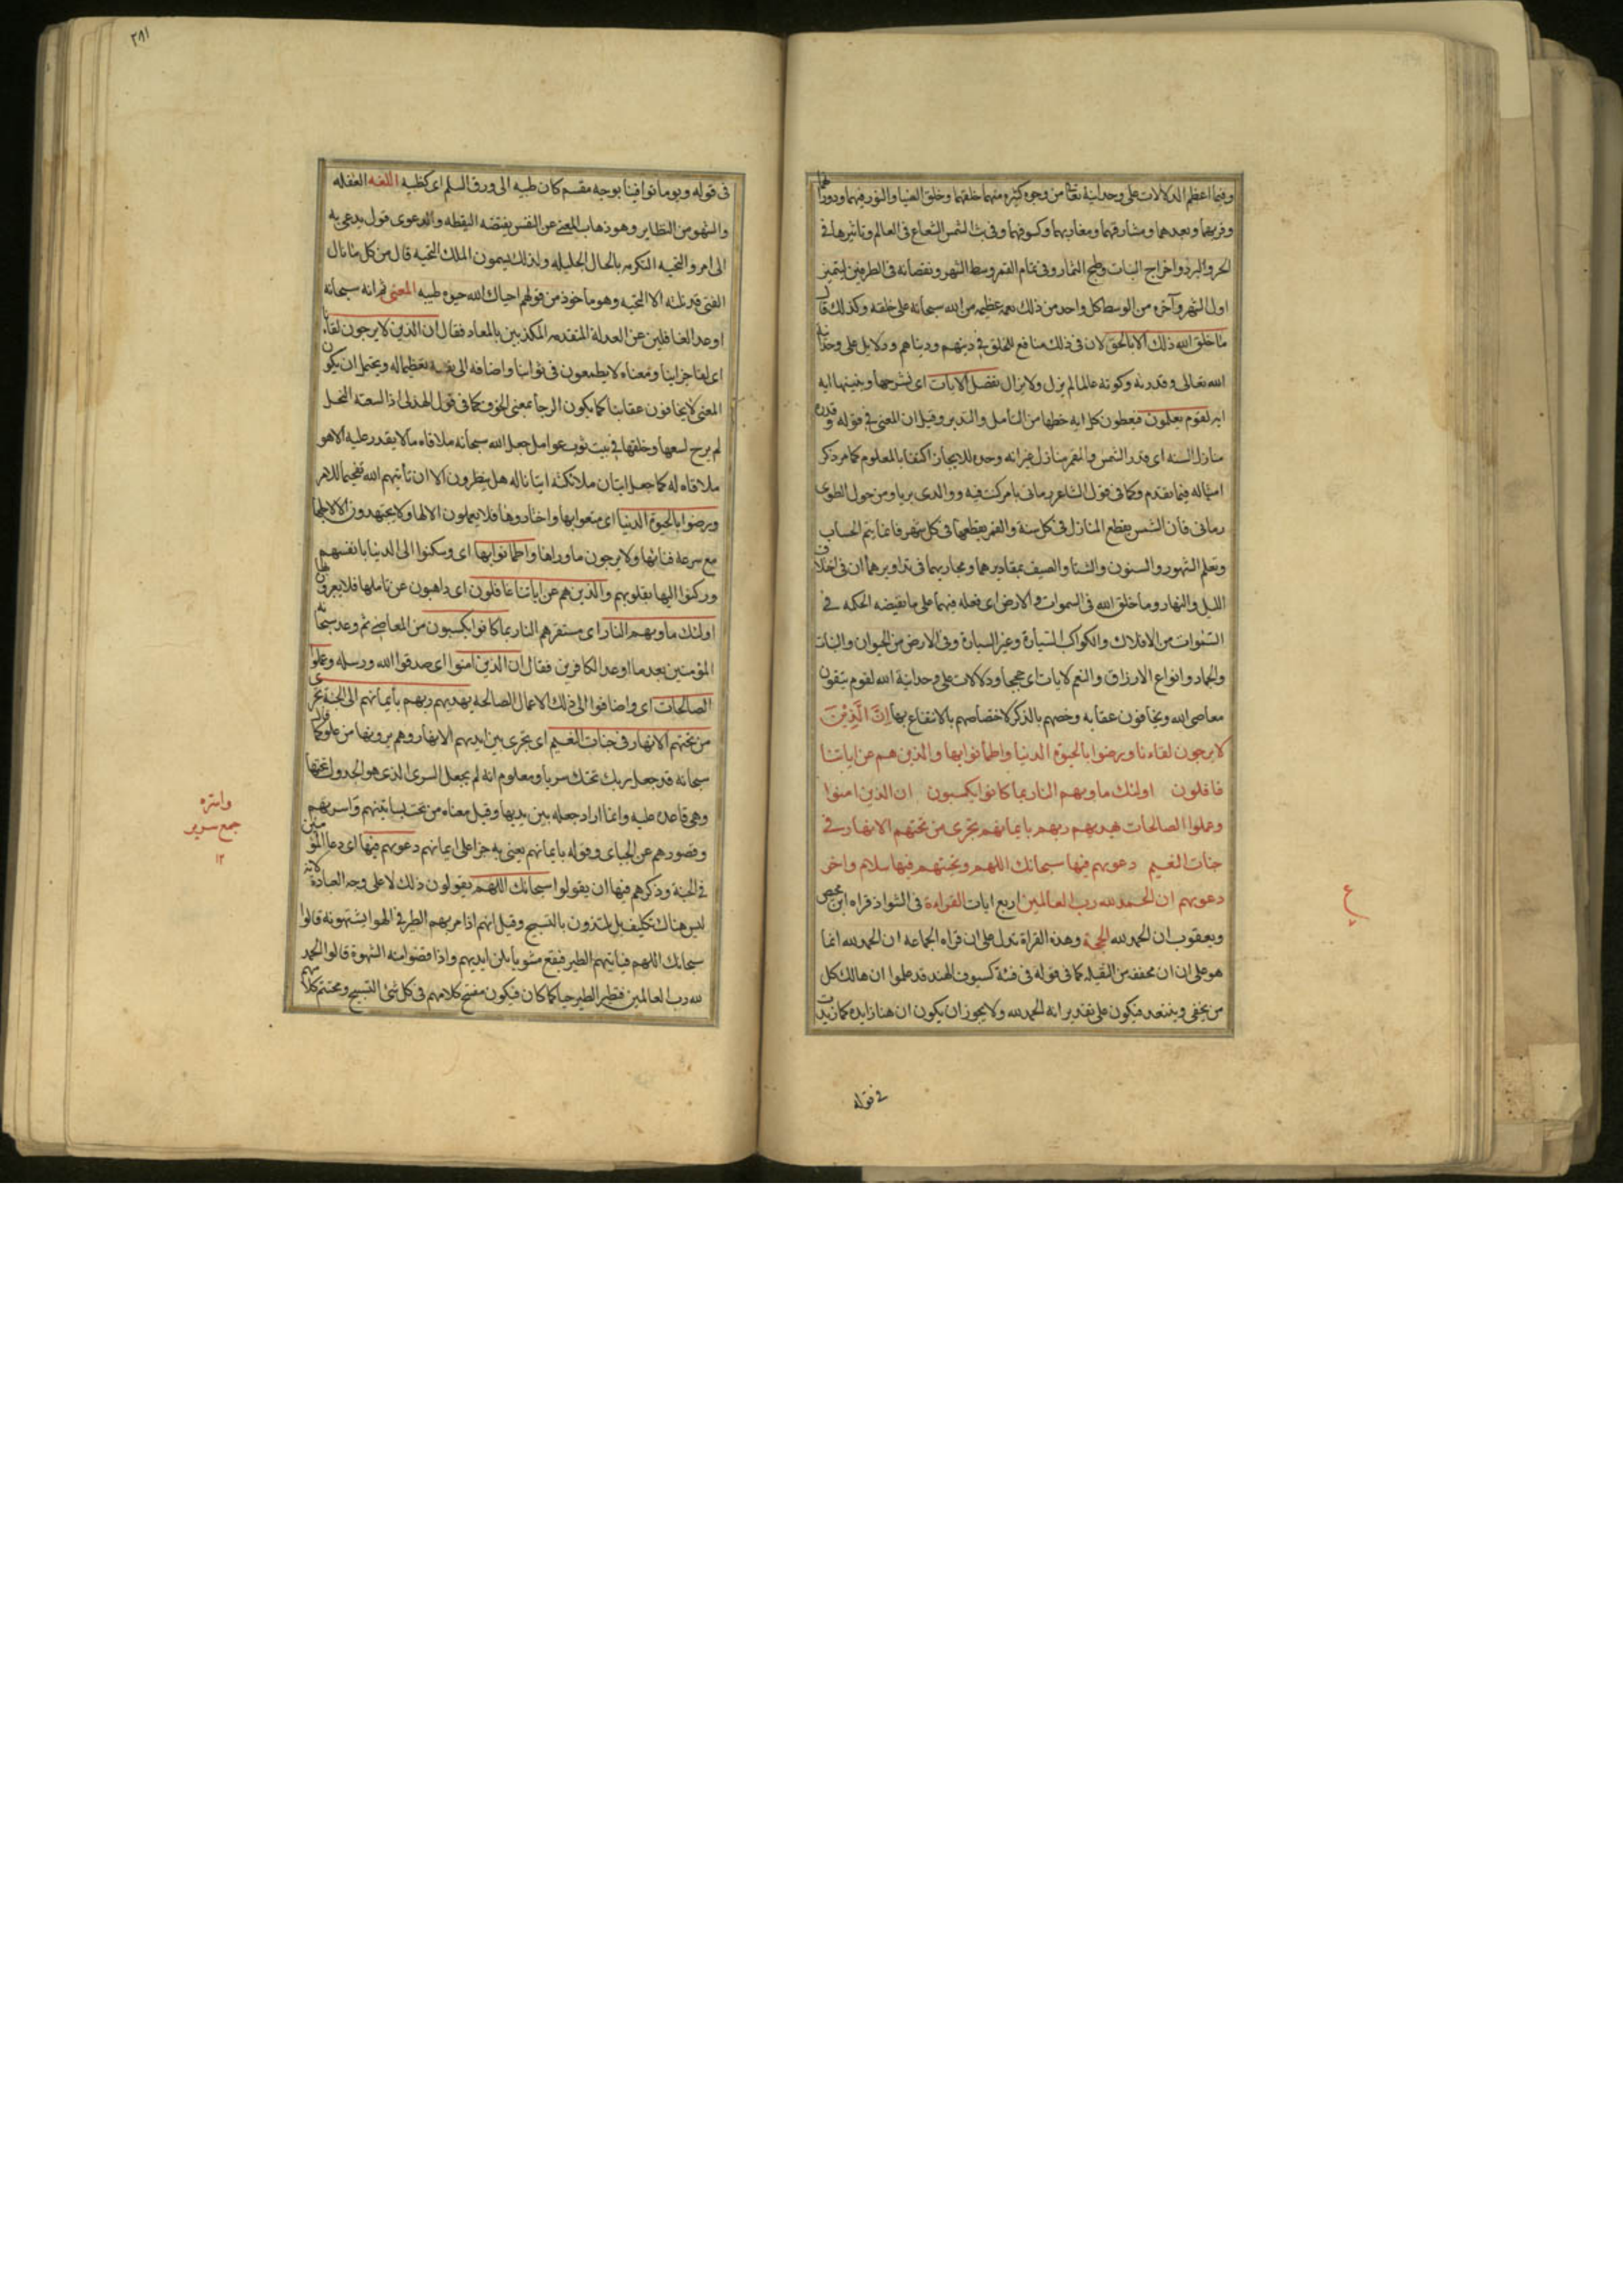 وفيهما اعظم الدلالات على وحدانية تعالى من وجوه كثيره منها خلقهما وخلق الضيا والنور فيهما ودورانهما
وقربهما وبعدهما ومشارقهما ومغاربهما وكسوفهما وفى بث الشمس الشعاع فى العالم وتاثيرها فى
الحر والبرد واخراج النبات وطبخ الثمار وفى تمام القمر وسط الشهر ونقصانه فى الطرفين ليتميز
اول الشهر وآخره من الوسط كل واحد من ذلك نعمه عظيمه من الله سبحانه على خلقه وكذلك قال
ما خلق الله ذلك الا بالحق لان فى ذلك منافع للخلق فى دينهم ودنياهم ودلايل على وحدانية
الله تعالى وقدرته وكونه عالما لم يزل ولا يزال نفصل الايات اى نشرحها ونبينها ايه
ايه لقوم يعلمون فيعطون كل ايه حظها من التأمل والتدبر وقيل ان المعنى فى قوله وقدره
منازل التثنيه اى قدر الشمس والقمر منازل غير انه وحده للايجاز اكتفا بالمعلوم كما مر ذكر
امثاله فيما تقدم وكما فى قول الشاعر رمانى بامر كنت فيه ووالدى بريا ومن جول الطوى
رمانى فان الشمس يقطع المنازل فى كل سنة والقمر يقطعها فى كل شهر فانما يتم الحساب
وتعلم الشهور والسنون والشتا والصيف بمقاديرهما ومجاريهما فى تداويرهما ان فى اختلاف
الليل والنهار وما خلق الله فى السموات والارض اى فعله فيهما على ما تقتضيه الحكمه فى
السموات من الافلاك والكواكب السيارة وغير السيارة وفى الارض من الحيوان والنبات
والجماد وانواع الارزاق والنعم لايات اى حججا ودلالات على وحدانية الله لقوم يتقون
معاصى الله ويخافون عقابه وخصهم بالذكر لاختصاصهم بالانتفاع بها اِنَّ الَّذِيْنَ
لا يرجون لقاءنا ورضوا بالحيوة الدنيا واطمأنوا بها والذين هم عن اياتنا
غافلون اولئك ماويهم النار بما كانوا يكسبون ان الذين امنوا
وعملوا الصالحات يهديهم ربهم بايمانهم تجرى من تحتهم الانهار فى
جنات النعيم دعويهم فيها سبحانك اللهم وتحيتهم فيها سلام واخر
دعويهم ان الحمد لله رب العالمين اربع ايات القراءة فى الشواذ قراه ابن محيصن
ويعقوب ان الحمد لله الحجة وهذه القراة تدل على ان قراه الجماعه ان الحمد لله انما
هو على ان ان مخففه من الثقيله كما فى قوله فى فتية كسيوف الهند قد علموا ان هالك كل
من يخفى وينتعل فيكون على تقدير انه الحمد لله ولا يجوز ان يكون ان هنا زايده كما زيدت
فى قوله
ع
٢٨١
فى قوله ويوما توافينا بوجه مقسم كان ظبيه الى ورق السلم اى كظبيه اللغه الغفله
والسهو من النظاير وهو ذهاب المعنى عن النفس يقتضه اليقظه والدعوى قول يدعى به
الى امر والتحيه التكرمه بالحال الجليله ولذلك يسمون الملك التحيه قال من كل ما نال
الفتى قد نلته الا التحيه وهو ماخوذ من قولهم احياك الله حيوة طيبه المعنى ثم انه سبحانه
اوعد الغافلين عن العدلة المتقدمه المكذبين بالمعاد فقال ان الذين لا يرجون لقاءنا
اى لقا جزاينا ومعناه لا يطمعون فى ثوابنا واضافه الى نفسه تعظيما له ويحتمل ان يكون
المعنى لا يخافون عقابنا كما يكون الرجا بمعنى الخوف كما فى قول الهذلى اذا لسعته النحل
لم يرج لسعها وخلفها فى بيت نوب عوامل جعل الله سبحانه ملاقاه ما لا يقدر عليه الا هو
ملاقاه له كما جعل اتيان ملائكته اتيانا له هل ينظرون الا ان تأتيهم الله تفخيما للامر
ورضوا بالحيوة الدنيا اى متعوا بها واختاروها فلا يعملون الا لها ولا يجتهدون الا لاجلها
مع سرعه فنائها ولا يرجون ما وراها واطمانوا بها اى وسكنوا الى الدنيا بانفسهم
وركنوا اليها بقلوبهم والذين هم عن اياتنا غافلون اى ذاهبون عن تاملها فلا يعرفونها
اولئك ماويهم النار اى مستقرهم النار بما كانوا يكسبون من المعاصى ثم وعد سبحانه
المؤمنين بعد ما اوعد الكافرين فقال ان الذين امنوا اى صدقوا الله ورسله وعملوا
الصالحات اى واضافوا الى ذلك الاعمال الصالحة يهديهم ربهم بأيمانهم الى الجنة تجرى
من تحتهم الانهار فى جنات النعيم اى تجرى بين ايديهم الانهار وهم يرونها من علو كما قال
سبحانه قد جعل ربك تحتك سريا ومعلوم انه لم يجعل السرى الذى هو الجدول تحتها
وهى قاعده عليه وانما اراد جعله بين يديها وقيل معناه من تحت بساتينهم واسرتهم
وقصورهم عن الجباى وقوله بايمانهم يعنى به جزا على ايمانهم دعويهم فيها اى دعا المؤمنين
فى الجنة وذكرهم فيها ان يقولوا سبحانك اللهم يقولون ذلك لا على وجه العبادة لانه
ليس هناك تكليف بل يلتذون بالتسبيح وقيل انهم اذا مر بهم الطير فى الهوا يشتهونه قالوا
سبحانك اللهم فيأتيهم الطير فيقع مشويا بين ايديهم واذا قضوا منه الشهوة قالوا الحمد
لله رب العالمين فيطير الطير حيا كما كان فيكون مفتتح كلامهم فى كل شئ التسبيح ومختتم كلامهم
واسره
جمع سرير
١٢